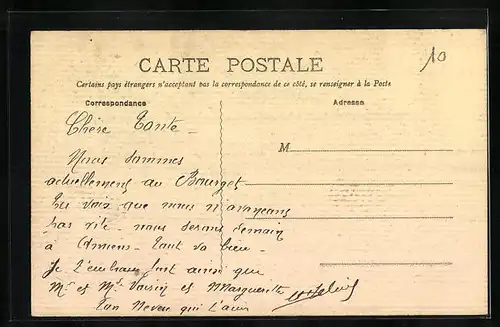 10
CARTE POSTALE
Certains pays étrangers n'acceptant pas la correspondance de ce côté, se renseigner à la Poste
Correspondance
Adresse
Chère Tante
M
Nous sommes
actuellement au Bourget
Tu vois que nous n'avançons
pas vite - nous serons demain
à Amiens - tout va bien -
Je t'embrasse fort ainsi que
Mr et Me Voisin et Marguerite
Ton Neveu qui t'aime